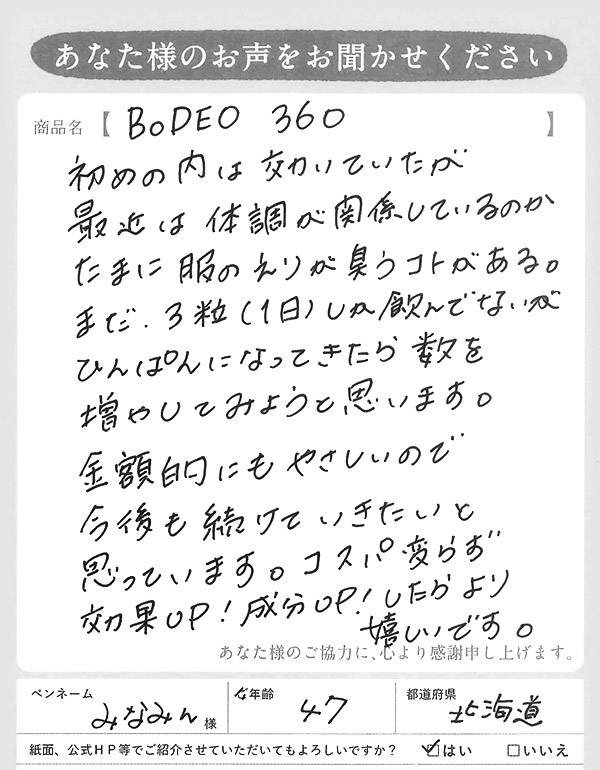 あなた様のお声をお聞かせください
商品名【 BoDEO 360 】
初めの内は効いていたが
最近は体調が関係しているのか
たまに服のえりが臭うコトがある。
まだ、3粒(1日)しか飲んでないが
ひんぱんになってきたら数を
増やしてみようと思います。
金額的にもやさしいので
今後も続けていきたいと
思っています。コスパ変らず
効果UP!成分UP!したらより
嬉しいです。
あなた様のご協力に、心より感謝申し上げます。
ペンネーム みなみん 様 年齢 47 都道府県 北海道
紙面、公式HP等でご紹介させていただいてもよろしいですか? ☑はい □いいえ